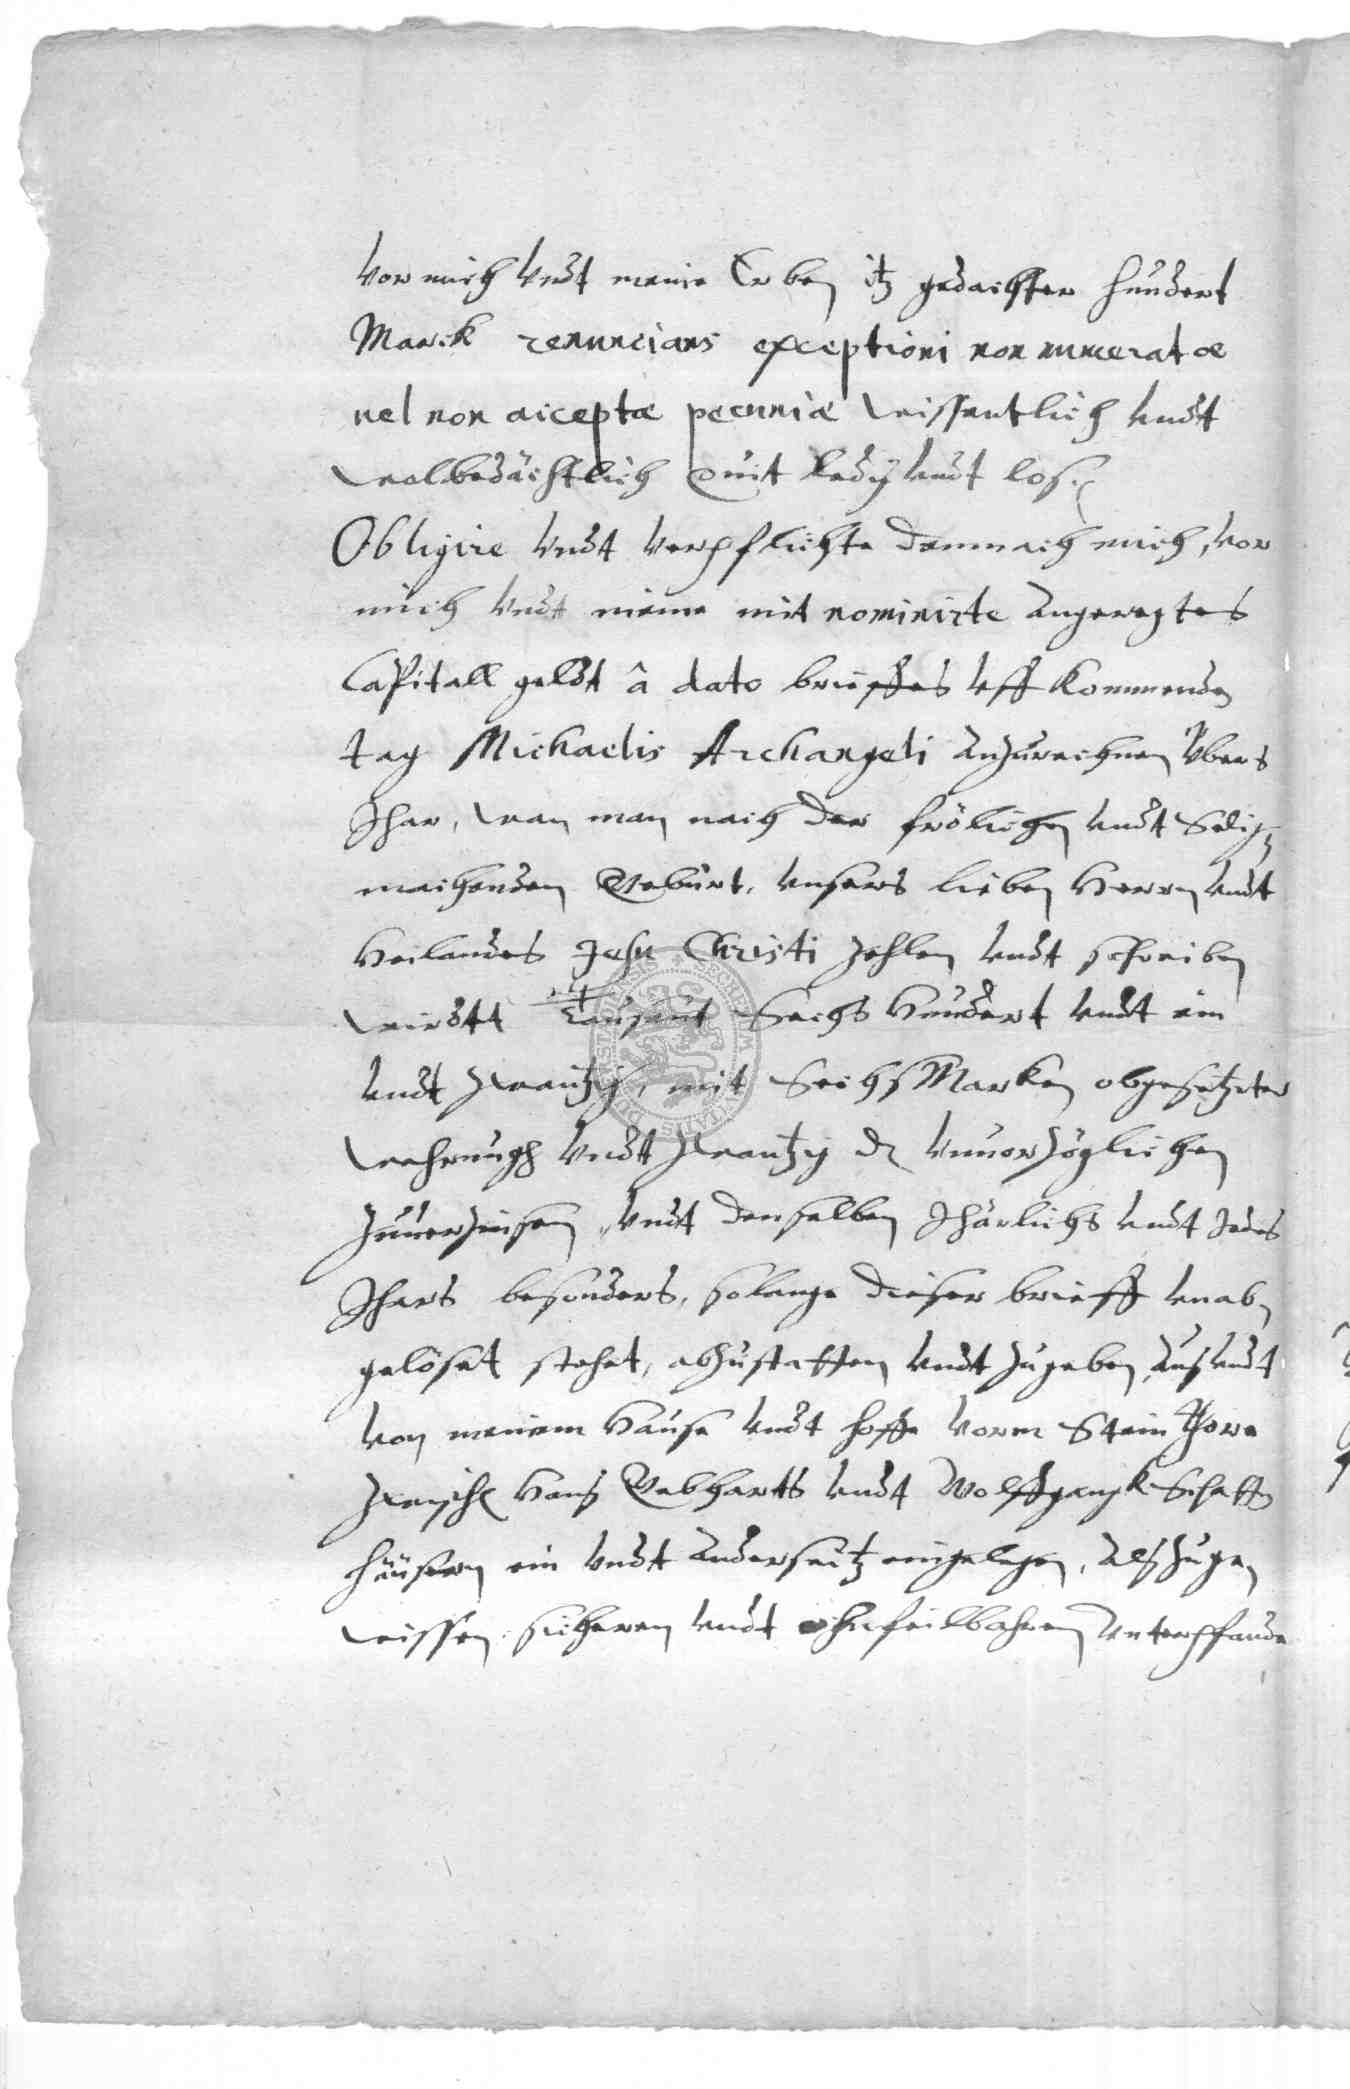 vor mich vndt meine Erben itz gedachter hundert
Marck renuncians exceptioni non numeratæ
vel non acceptæ pecuniæ wissentlich vndt
wolbedächtlich quit ledig vndt loß.
Obligire vndt verpflichte demnach mich, vor
mich vndt meine mit nominirte angeregtes
Capitall geldt â dato brieffes vff kommenden
tag Michaelis Archangeli anzurechnen vbers
Jhar, wan man nach der frölichen vndt Selig
machenden Geburt, vnsers lieben Herrn vndt
Heilandes Jesu Christi zehlen vndt schreiben
wirdtt Tausent Sechs Hundert vndt ein
vndt zwantzig, mit Sechs Marken obgesetzter
wehrungh vndt zwantzig vnuorzöglichen
zuuerzinsen, vndt denselben Jhärlichs vndt Jedes
Jhars besonders, solange dieser brieff vnab
gelöset stehet, abzustatten vndt zugeben, Aus vndt
von meinem Hause vndt hoffe vorm Stein Thore
zwischen Hans Gebhartts vndt Wolffgangk
häusern ein vndt anderseitz eingelegen, alß zuge
wissen sicheren vndt ohnfeilbahren Vnterpfande